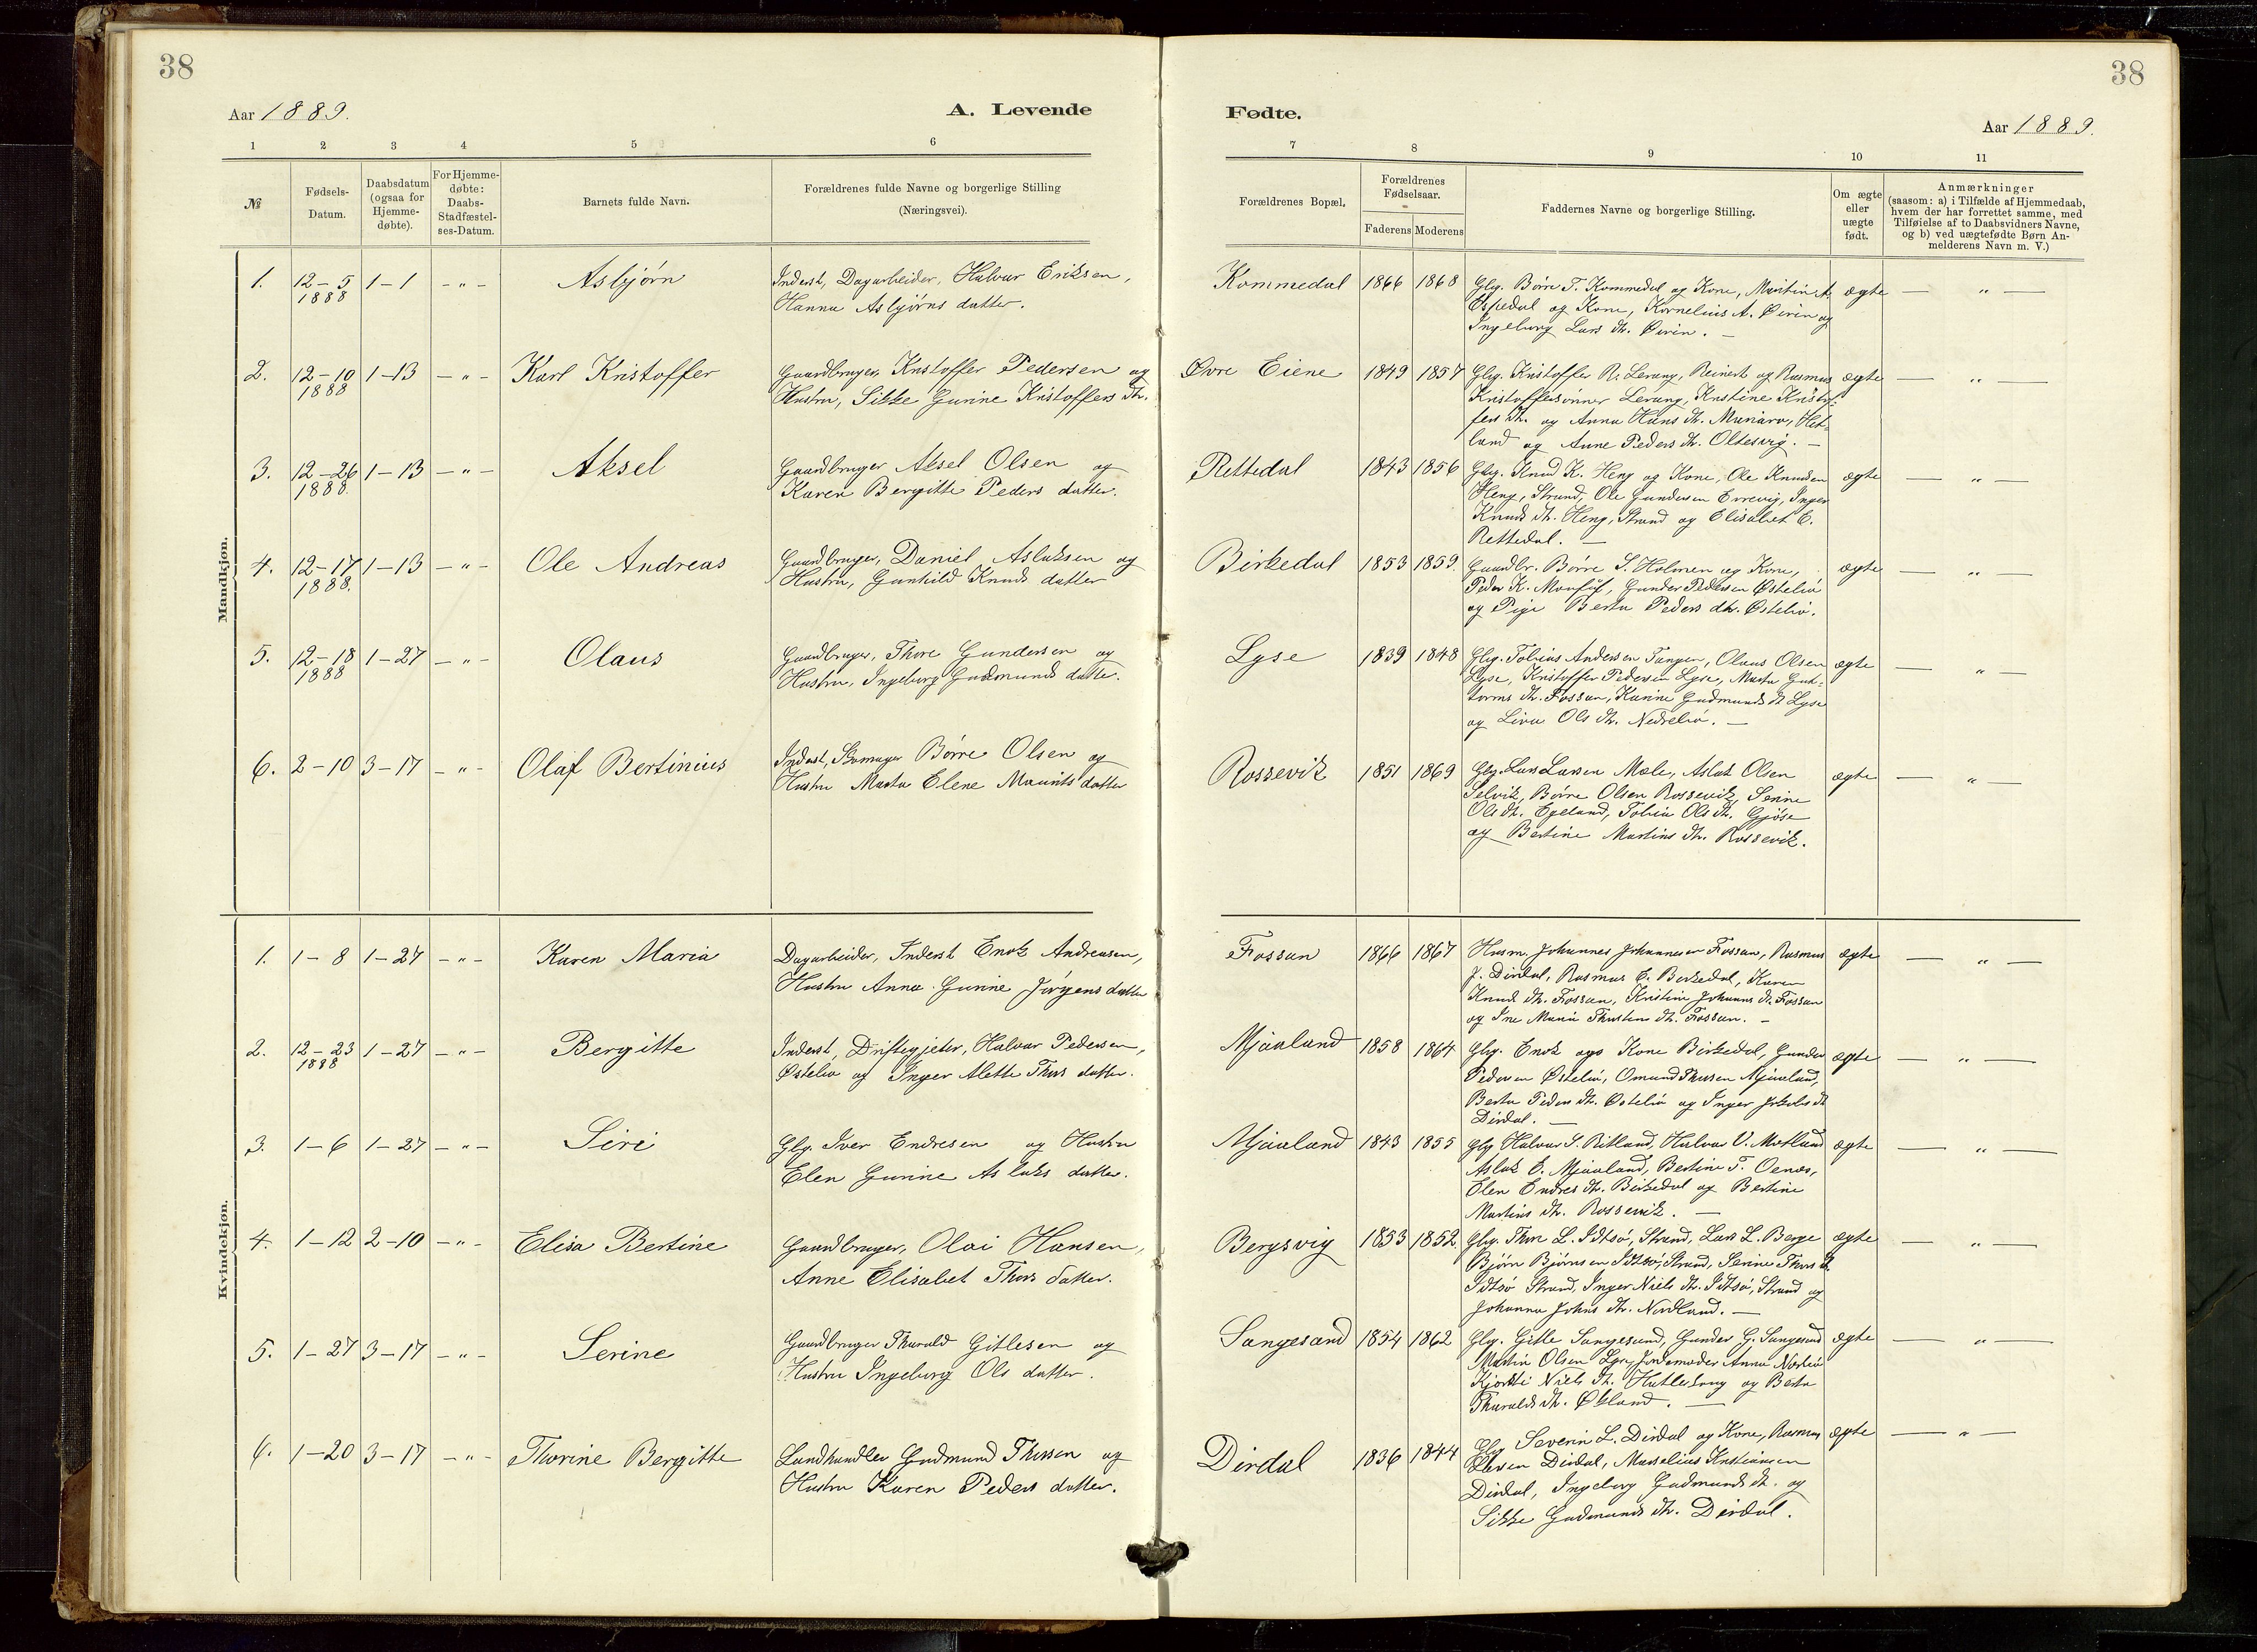 38
38
Aar 1889.
A. Levende
Fødte.
Aar 1889.
1 2 3 4 5 6
7 8 9 10 11
№
Fødsels-
Datum.
Daabsdatum
(ogsaa for
Hjemme-
døbte).
For Hjemme-
døbte:
Daabs-
Stadfæstel-
ses-Datum.
Barnets fulde Navn.
Forældrenes fulde Navne og borgerlige Stilling
(Næringsvei).
Forældrenes Bopæl.
Forældrenes
Fødselsaar.
Faderens Moderens
Faddernes Navne og borgerlige Stilling.
Om ægte
eller
uægte
født.
Anmærkninger
(saasom: a) i Tilfælde af Hjemmedaab,
hvem der har forrettet samme, med
Tilføielse af to Daabsvidners Navne,
og b) ved uægtefødte Børn An-
melderens Navn m. V.)
Mandkjøn.
1. 12-5 1-1 - " - Asbjørn
1888
Inderst, Dagarbeider, Halvar Eriksen,
Hanna Asbjørns datter.
Kommedal 1866 1868
Glg. Børre T. Kommedal og Kone, Martin A.
Espedal og Kone, Kornelius A. Øvrin og
Ingeborg Lars dtr. Øvrin. -
ægte - " -
2. 12-10 1-13 - " - Karl Kristoffer
1888
Gaardbruger, Kristoffer Pedersen og
Hustru, Sikke Gurine Kristoffers dtr.
Øvre Eiene 1849 1857
Glg. Kristoffer R. Lerang, Reinert og Rasmus
Kristoffersønner Lerang, Kristine Kristof-
fers dtr. og Anna Hans dtr. Munarv, Het-
land og Anne Peders dtr. Oltesvig. -
ægte - " -
3. 12-26 1-13 - " - Aksel
1888.
Gaardbruger Aksel Olsen og
Karen Bergitte Peders datter.
Rettedal 1843 1856
Glg. Knud K. Heng og Kone, Ole Knudsen
Heng, Strand, Ole Gundersen Evrevig, Inger
Knuds dtr. Heng, Strand og Elisabet E.
Rettedal. -
ægte - " -
4. 12-17 1-13 - " - Ole Andreas
1888.
Gaardbruger, Daniel Aslaksen og
Hustru, Gunhild Knuds datter
Birkedal 1853 1859.
Gaardbr. Børre S. Holmen og Kone,
Peder K. Gunder Pedersen Østeliø
og Pige Berta Peders dtr. Østeliø.
ægte - " -
5. 12-18 1-27 - " - Olaus
1888
Gaardbruger, Thore Gundersen og
Hustru, Ingeborg Gudmunds datter.
Lyse 1839 1848
Glg. Tobias Andersen Tangen, Olaus Olsen
Lyse, Kristoffer Pedersen Lyse, Marta Gut-
torms dtr. Fossan, Karine Gudmunds dt Lyse
og Liva Ols dtr. Nedreliø. -
ægte - " -
6. 2-10 3-17 - " - Olaf Bertinius
Inderst, Skomager Børre Olsen og
Hustru Marta Elene Maurits datter
Rossevik 1851 1869
Glg. Lars Larsen Mæle, Aslak Olsen
Selvik, Børre Olsen Rossevik, Serine
Ols dtr. Egeland, Tobia Ols dtr. Gjøse
og Bertine Martins dtr. Rossevik.
ægte - " -
Kvindekjøn.
1. 1-8 1-27 - " - Karen Maria
Dagarbeider, Inderst Enok Andreasen,
Hustru Anna Gurine Jørgens datter
Fossan 1866 1867
Husm. Johannes Johannesen Fossan, Rasmus
J. Dirdal, Rasmus E. Birkedal, Karen
Knuds dtr. Fossan, Kristine Johanns dt. Fossan
og Ine Maria Thostens dtr. Fossan. -
ægte - " -
2. 12-23 1-27 - " - Bergitte
1888
Inderst, Driftegjeter, Halvar Pedersen,
Østeliø og Inger Alette Thors datter.
Mjaaland 1858 1864
Glg. Enok ogs Kone Birkedal, Gunder
Pedersen Østeliø, Omund Thorsen Mjaaland,
Berta Peders dtr. Østeliø og Inger dt
Dirdal. -
ægte - " -
3. 1-6 1-27 - " - Siri
Glg. Iver Endresen og Hustru
Elen Gurine Aslaks datter.
Mjaaland 1843 1855
Glg Halvar S. Ritland, Halvar V. Motland
Aslak E. Mjaaland, Bertine T. Oenæs,
Elen Endres dtr. Birkedal og Bertine
Martins dtr. Rossevik. -
ægte - " -
4. 1-12 2-10 - " - Elisa Bertine
Gaardbruger, Olai Hansen,
Anne Elisabet Thors datter.
Bergsvig 1853 1852.
Glg. Thor L. Idtsø, Strand, Lars L. Berge
Bjørn Bjørnsen Idtsø, Strand, Serine Thors dt.
Idtsø Strand, Inger Niels dtr. Idtsø, Strand og
Johanna Johns dtr. Nordland. -
ægte - " -
5. 1-27 3-17 - " - Serine
Gaardbruger Tharald Gitlesen og
Hustru Ingeborg Ols datter.
Sangesand 1854 1862
Glg. Gitle Sangesand, Gunder G. Sangesand
Martin Olsen Lyse, Jordemoder Anna
Niels dtr. og Berta
Tharalds dtr. ØKland. -
ægte - " -
6. 1-20 3-17 - " - Thorine Bergitte
Landhandler Gudmund Thorsen og
Hustru Karen Peders datter.
Dirdal 1836 1844
Glg Severin L. Dirdal og Kone, Rasmus
Dirdal, Marselius Kristiansen
Dirdal, Ingeborg Gudmunds dt. og
Sikke Gudmunds dtr. Dirdal.
ægte - " -